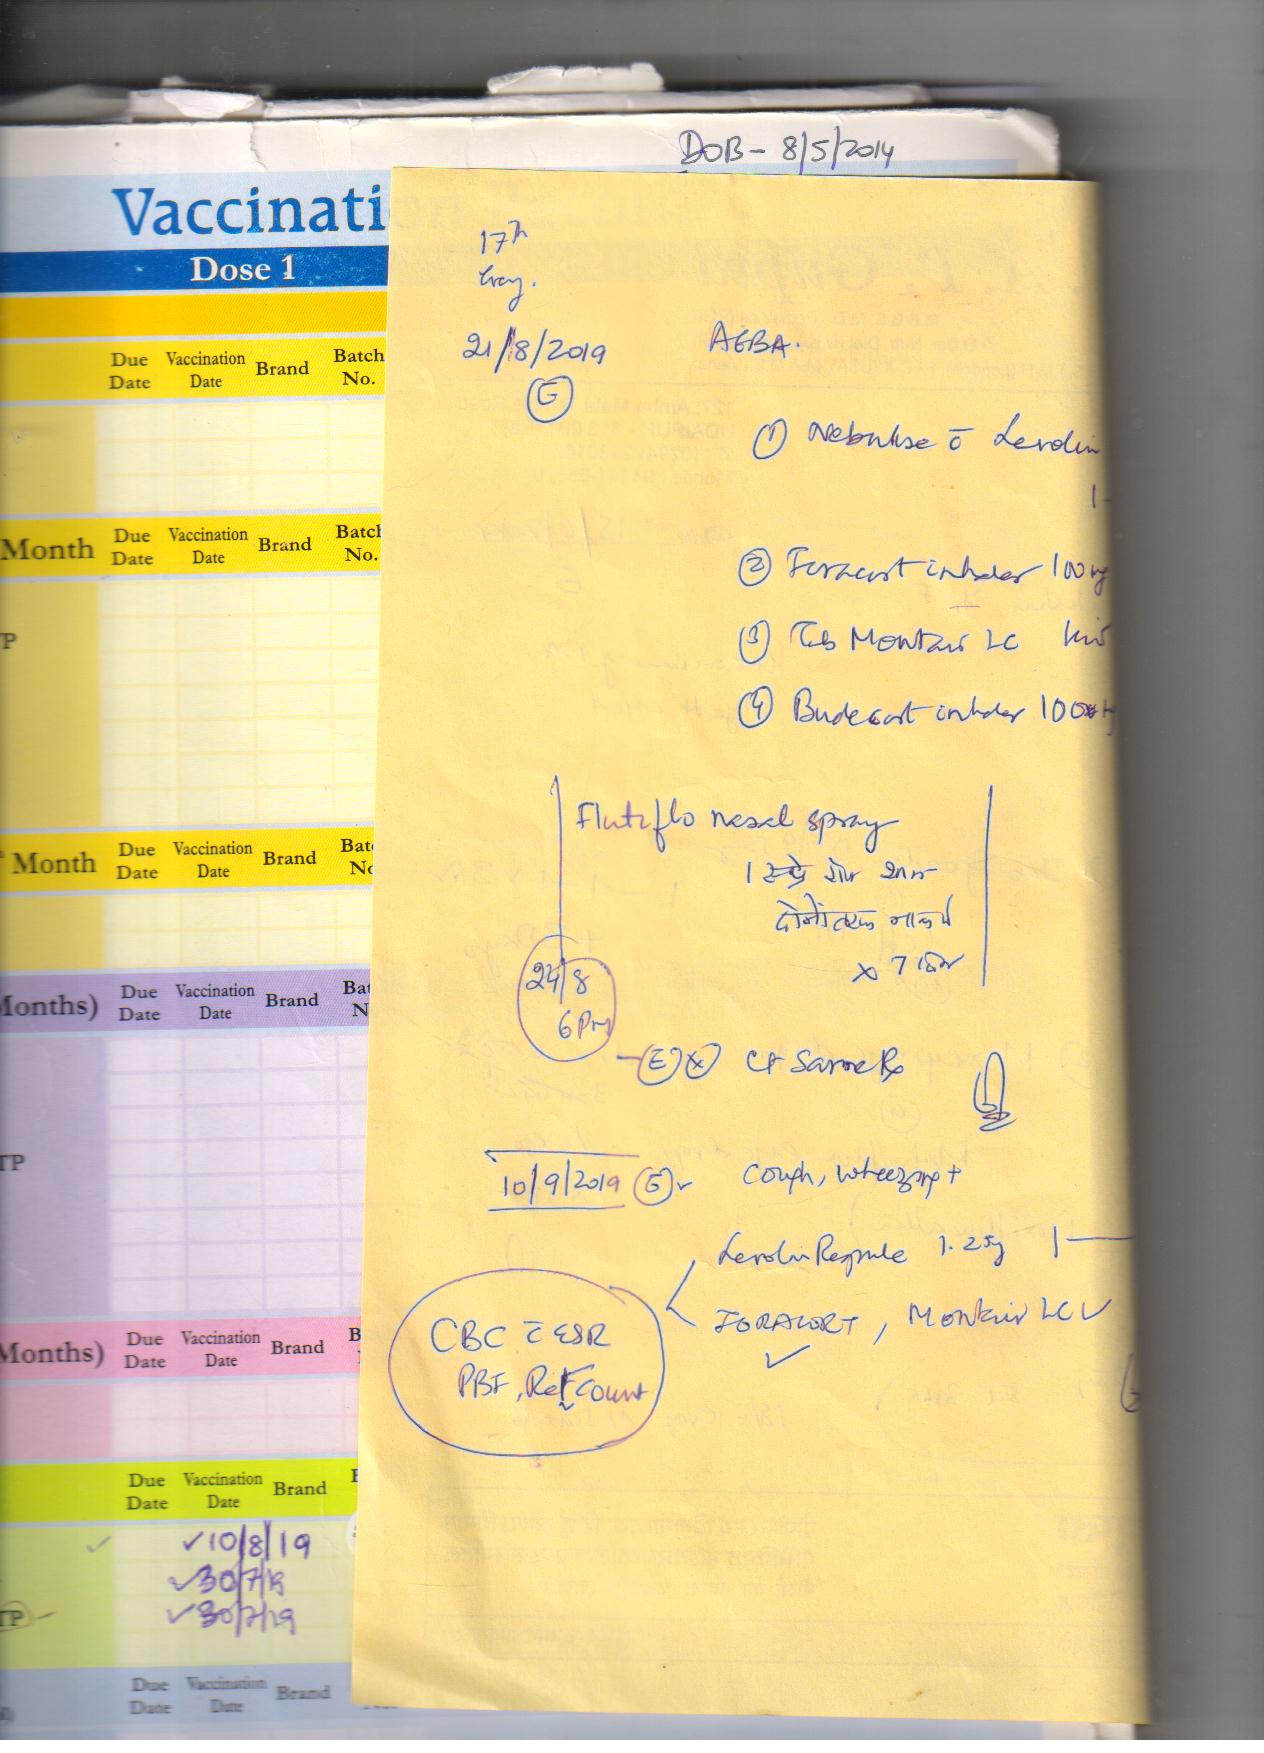 DOB - 8/5/2014
Vaccinati
Dose 1
Due Date Vaccination Date Brand Batch No.
Month Due Date Vaccination Date Brand Batch No.
TP
Month Due Date Vaccination Date Brand
Months) Due Date Vaccination Date Brand
TP
Months) Due Date Vaccination Date Brand
Due Date Vaccination Date Brand
✓ ✓10/8/19
✓30/7/19
TP ✓30/7/19
Due Date Vaccination Date Brand
17th
21/8/2019 AEBA.
① Nebulise c̄ Levolin
② Foracort inhaler 100
③ Tab Montair LC
④ Budecort inhaler 100
Flutiflo nasal spray
1 स्प्रे रोज शाम
दोनों तरफ नाक में
x 7 दिन
24/8
6 Pm
Ct Same Rx
10/9/2019 Cough, wheezing +
Levolin Respule 1.25
FORACORT, Montair LC ✓
CBC c̄ ESR
PBF, Ret Count